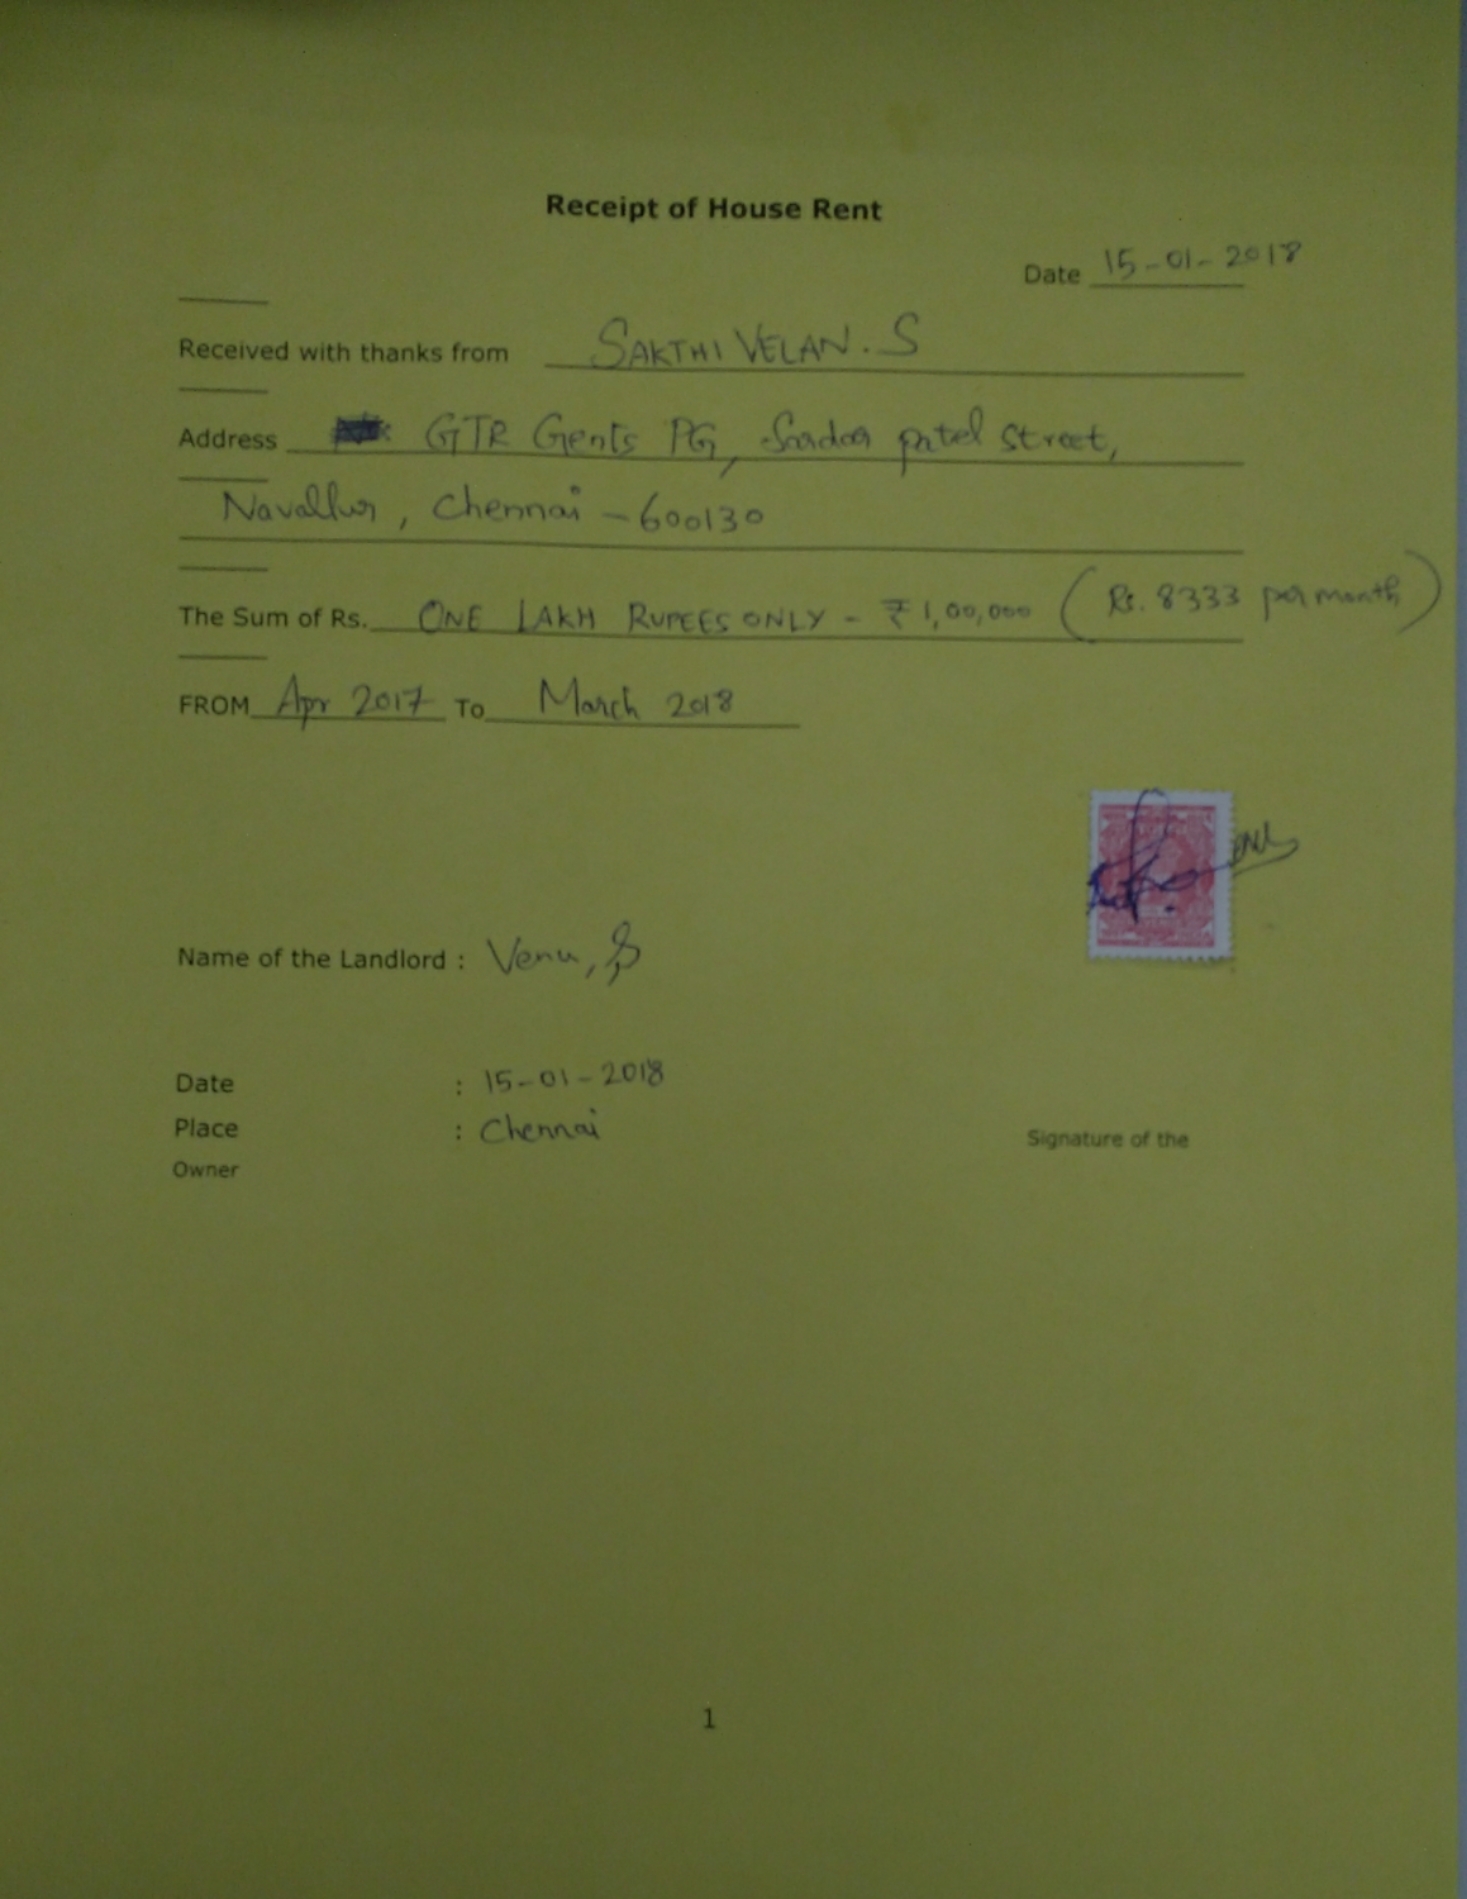 Receipt of House Rent
Date 15-01-2018
Received with thanks from SAKTHI VELAN. S
Address GTR Gents PG, Sardar patel Street,
Navallur, Chennai - 600130
The Sum of Rs. ONE LAKH RUPEES ONLY - ₹ 1,00,000 (Rs. 8333 per month)
FROM Apr 2017 To March 2018
Name of the Landlord : Venu, S
Date : 15-01-2018
Place : Chennai Signature of the
Owner
1